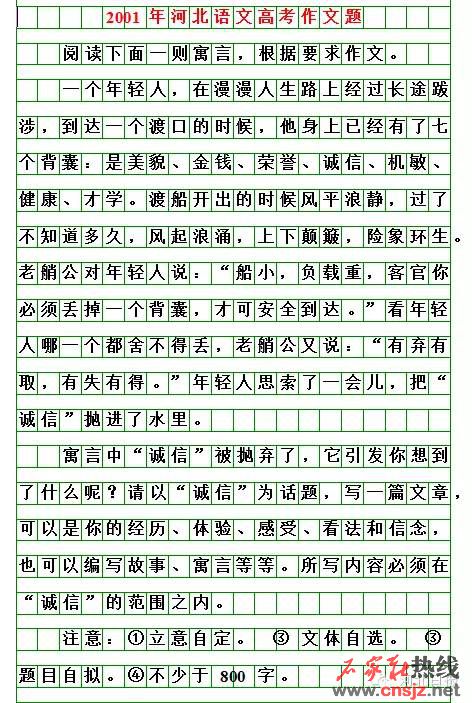 2001年河北语文高考作文题
阅读下面一则寓言，根据要求作文。
一个年轻人，在漫漫人生路上经过长途跋
涉，到达一个渡口的时候，他身上已经有了七
个背囊：是美貌、金钱、荣誉、诚信、机敏、
健康、才学。渡船开出的时候风平浪静，过了
不知道多久，风起浪涌，上下颠簸，险象环生。
老艄公对年轻人说：“船小，负载重，客官你
必须丢掉一个背囊，才可安全到达。”看年轻
人哪一个都舍不得丢，老艄公又说：“有弃有
取，有失有得。”年轻人思索了一会儿，把“
诚信”抛进了水里。
寓言中“诚信”被抛弃了，它引发你想到
了什么呢？请以“诚信”为话题，写一篇文章，
可以是你的经历、体验、感受、看法和信念，
也可以编写故事、寓言等等。所写内容必须在
“诚信”的范围之内。
注意：①立意自定。③文体自选。③
题目自拟。④不少于800字。
石家庄热线
www.cnsjz.net